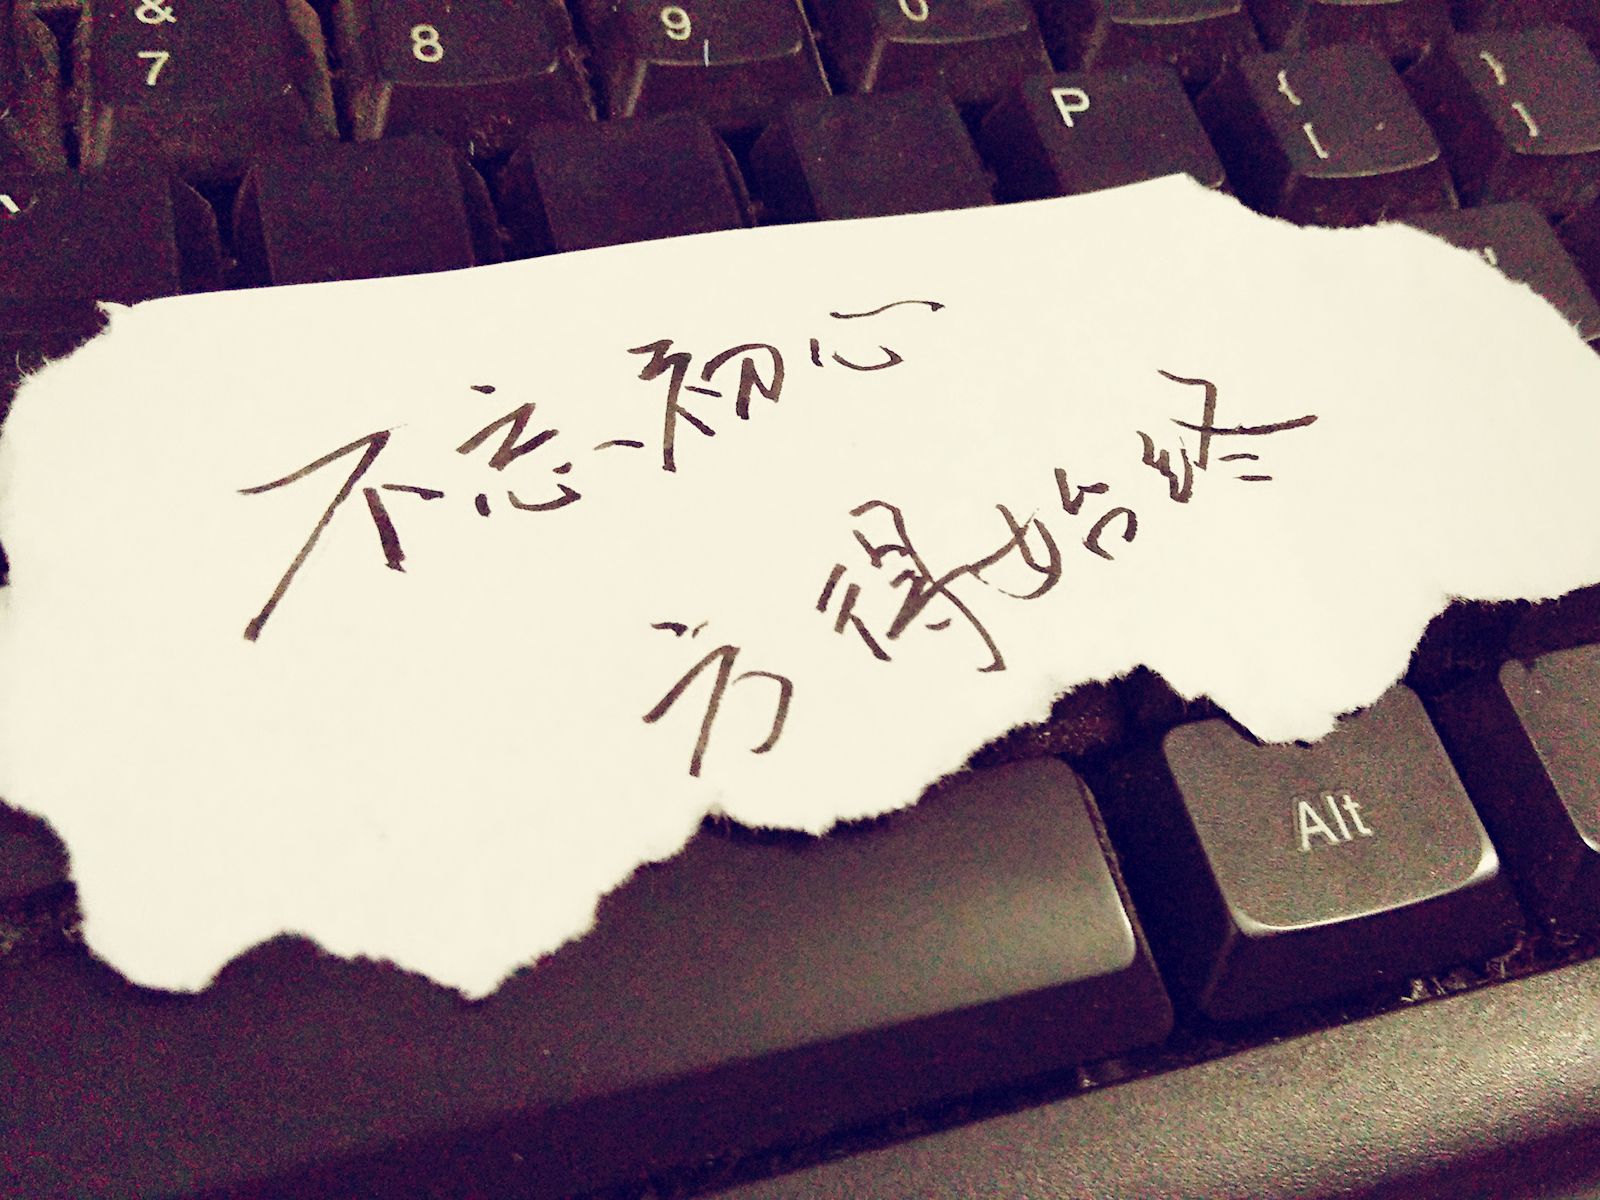 &
7
8
9
0
P
{
[
}
]
不忘初心
方得始终
Alt